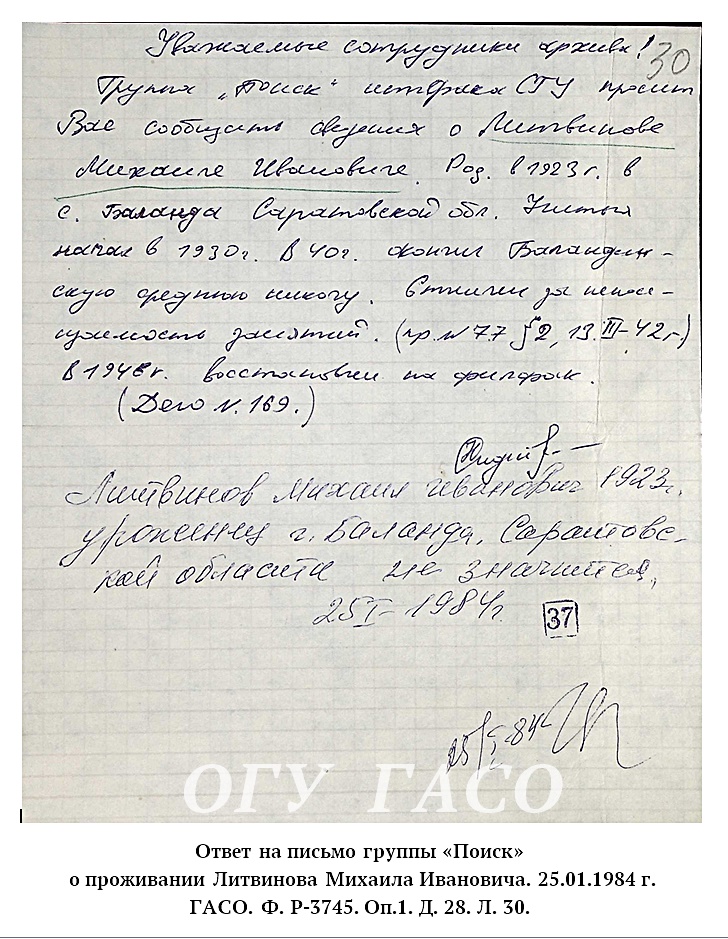 Уважаемые сотрудники архива!
30
Группа „Поиск“ истфака СГУ просит
Вас сообщить сведения о Литвинове
Михаиле Ивановиче. Род. в 1923 г. в
с. Баланда Саратовской обл. Учиться
начал в 1930 г. В 40 г. окончил Баландин-
скую среднюю школу. Отчислен за непосе-
щаемость занятий. (пр. № 77 §2, 13.III-42 г.)
В 1946 г. восстановлен на филфак.
(Дело N. 169.)
Литвинов Михаил Иванович 1923 г.
уроженец г. Баланда, Саратовс-
кой области не значится.
25 I - 1984 г.
37
25/I-84
ОГУ ГАСО
Ответ на письмо группы «Поиск»
о проживании Литвинова Михаила Ивановича. 25.01.1984 г.
ГАСО. Ф. Р-3745. Оп.1. Д. 28. Л. 30.